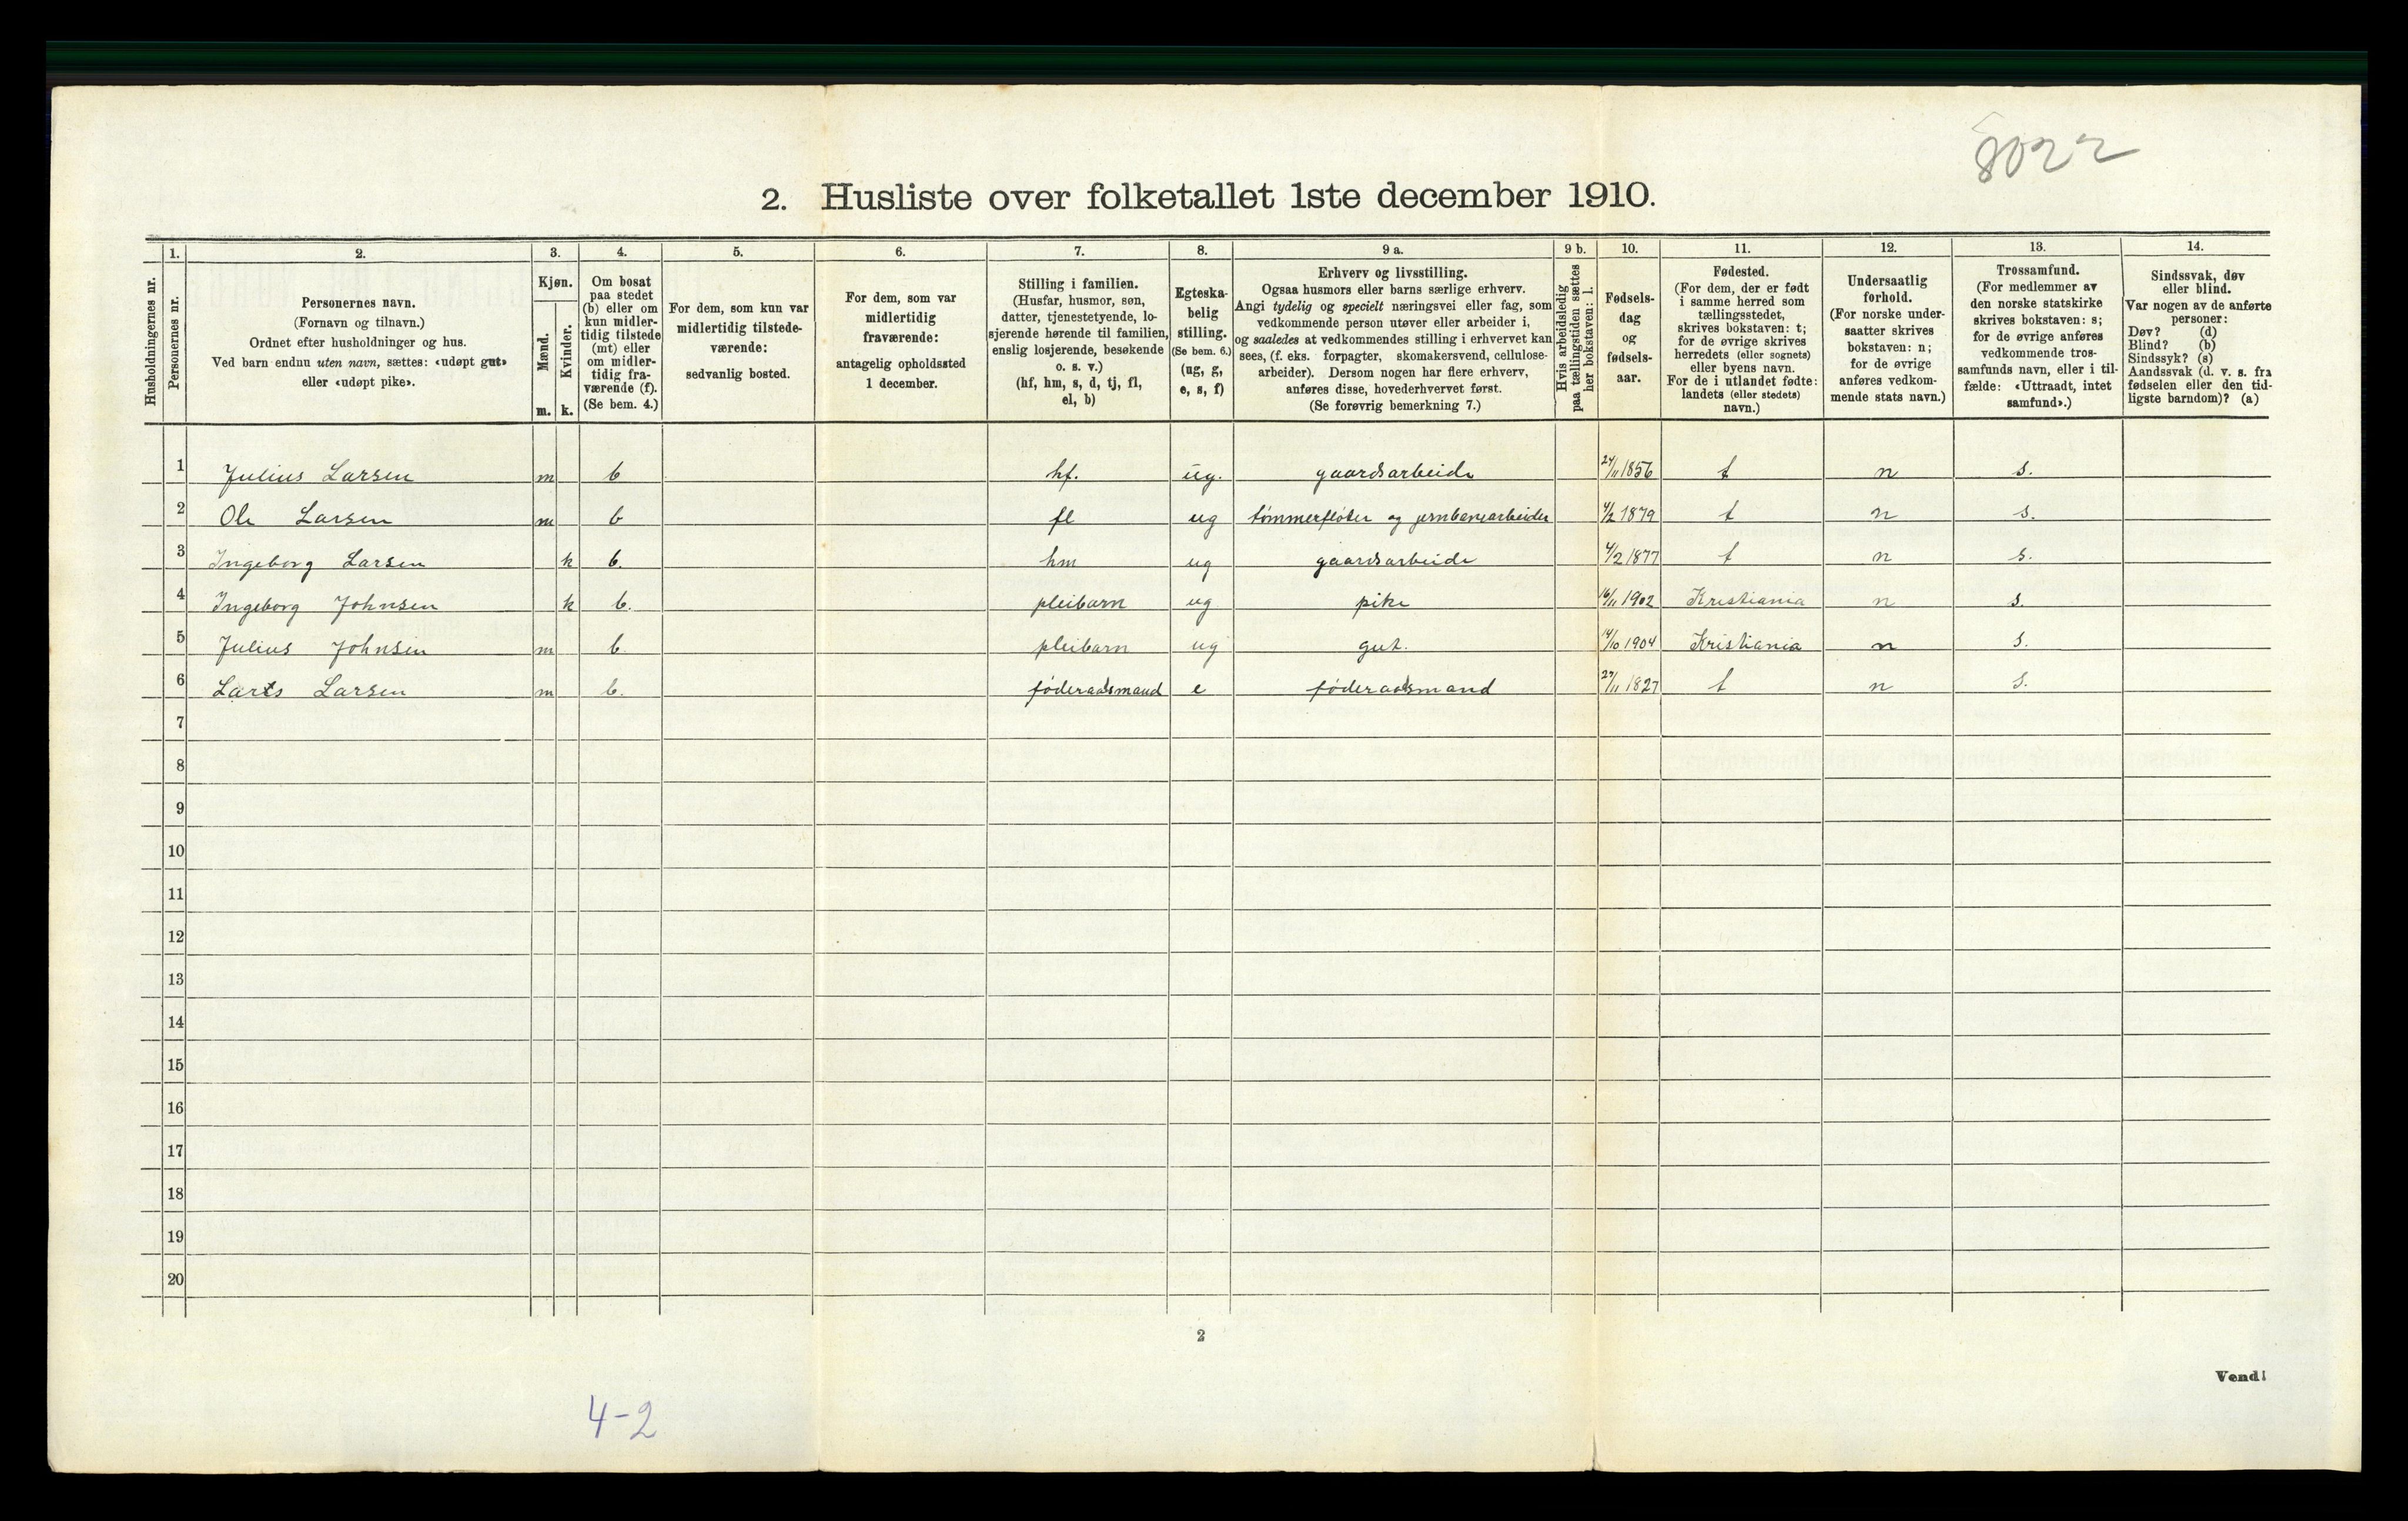 8022
2. Husliste over folketallet 1ste december 1910.
Husholdningernes nr.
1.
Personernes nr.
2.
Personernes navn.
(Fornavn og tilnavn.)
Ordnet efter husholdninger og hus.
Ved barn endnu uten navn, sættes: «udøpt gut»
eller «udøpt pike».
3.
Kjøn.
Mænd.
Kvinder.
m. k.
4.
Om bosat
paa stedet
(b) eller om
kun midler-
tidig tilstede
(mt) eller
om midler-
tidig fra-
værende (f).
(Se bem. 4.)
5.
For dem, som kun var
midlertidig tilstede-
værende:
sedvanlig bosted.
6.
For dem, som var
midlertidig
fraværende:
antagelig opholdssted
1 december.
7.
Stilling i familien.
(Husfar, husmor, søn,
datter, tjenestetyende, lo-
sjerende hørende til familien,
enslig losjerende, besøkende
o. s. v.)
(hf, hm, s, d, tj, fl,
el, b)
8.
Egteska-
belig
stilling.
(Se bem. 6.)
(ug, g,
e, s, f)
9 a.
Erhverv og livsstilling.
Ogsaa husmors eller barns særlige erhverv.
Angi tydelig og specielt næringsvei eller fag, som
vedkommende person utøver eller arbeider i,
og saaledes at vedkommendes stilling i erhvervet kan
sees, (f. eks. forpagter, skomakersvend, cellulose-
arbeider). Dersom nogen har flere erhverv,
anføres disse, hovederhvervet først.
(Se forøvrig bemerkning 7.)
9 b.
Hvis arbeidsledig
paa tællingstiden sættes
her bokstaven: l.
10.
Fødsels-
dag
og
fødsels-
aar.
11.
Fødested.
(For dem, der er født
i samme herred som
tællingsstedet,
skrives bokstaven: t;
for de øvrige skrives
herredets (eller sognets)
eller byens navn.
For de i utlandet fødte:
landets (eller stedets)
navn.)
12.
Undersaatlig
forhold.
(For norske under-
saatter skrives
bokstaven: n;
for de øvrige
anføres vedkom-
mende stats navn.)
13.
Trossamfund.
(For medlemmer av
den norske statskirke
skrives bokstaven: s;
for de øvrige anføres
vedkommende tros-
samfunds navn, eller i til-
fælde: «Uttraadt, intet
samfund».)
14.
Sindssvak, døv
eller blind.
Var nogen av de anførte
personer:
Døv? (d)
Blind? (b)
Sindssyk? (s)
Aandssvak (d. v. s. fra
fødselen eller den tid-
ligste barndom)? (a)
1 Julius Larsen m b hf. ug. gaardsarbeide 24/11 1856 t n s.
2 Ole Larsen m b fl ug tömmerflöter og jernbanearbeider 4/2 1879 t n s.
3 Ingeborg Larsen k b. hm ug gaardsarbeide 4/2 1877 t n s.
4 Ingeborg Johnsen k b. pleibarn ug pike 16/11 1902 Kristiania n s.
5 Julius Johnsen m b. pleibarn ug gut. 14/10 1904 Kristiania n s.
6 Lars Larsen m b. föderaadsmand e föderaadsmand 27/11 1827 t n s.
7
8
9
10
11
12
13
14
15
16
17
18
19
20
2
Vend!
4-2